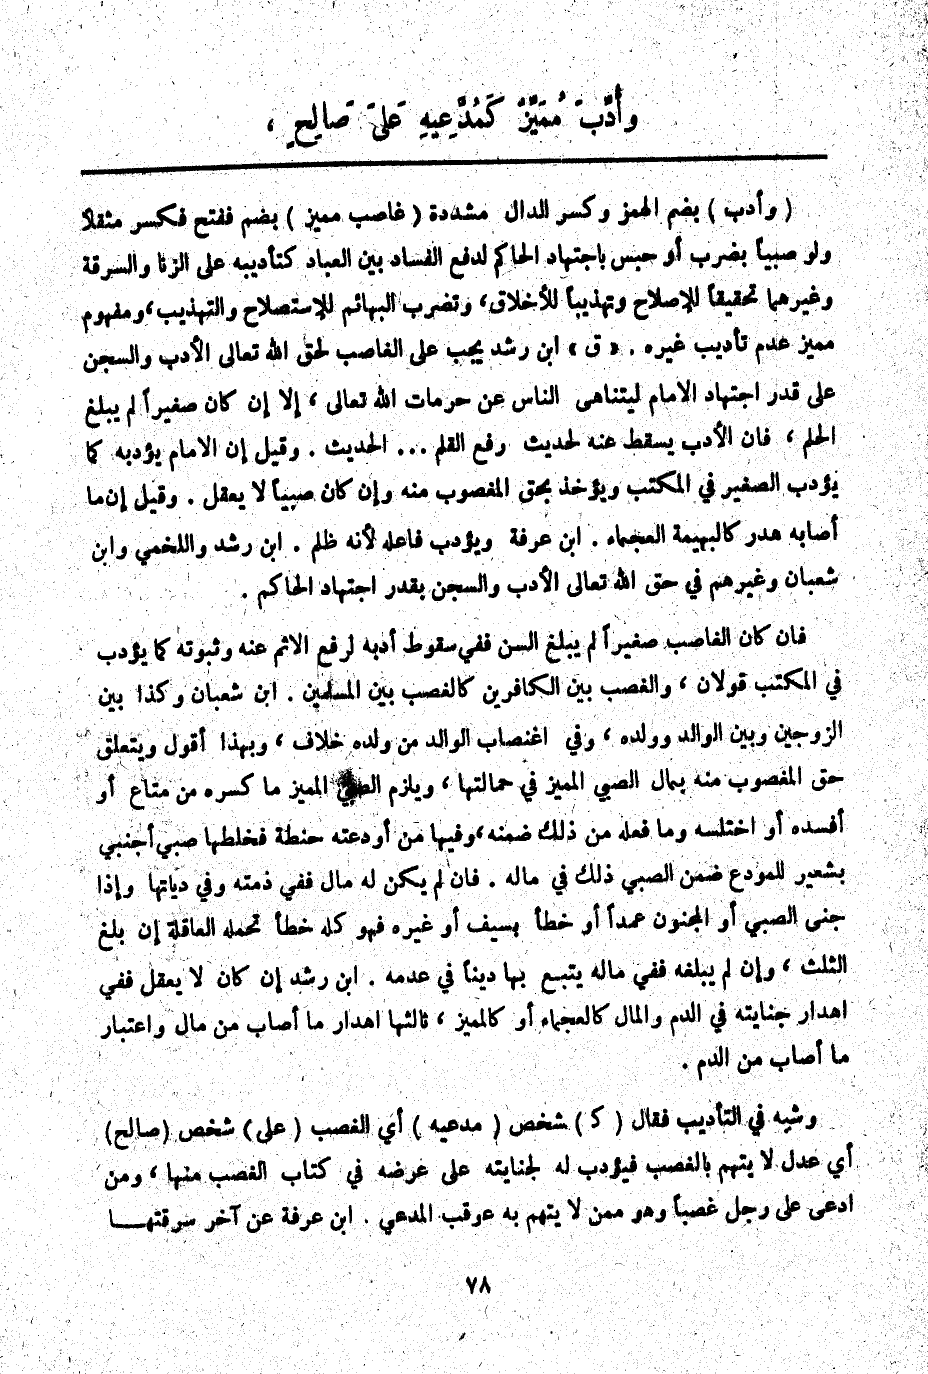 وأُدِّبَ مُمَيِّزٌ كَمُدَّعِيهِ عَلَى صَالِحٍ ،
( وأدب ) بضم الهمز وكسر الدال مشددة ( غاصب مميز ) بضم ففتح فكسر مثقلاً
ولو صبياً بضرب أو حبس باجتهاد الحاكم لدفع الفساد بين العباد كتأديبه على الزنا والسرقة
وغيرهما تحقيقاً للإصلاح وتهذيباً للأخلاق، وتضرب البهائم للإستصلاح والتهذيب، ومفهوم
مميز عدم تأديب غيره . « ق » ابن رشد يجب على الغاصب لحق الله تعالى الأدب والسجن
على قدر اجتهاد الامام ليتناهى الناس عن حرمات الله تعالى ، إلا إن كان صغيراً لم يبلغ
الحلم ، فان الأدب يسقط عنه لحديث رفع القلم ... الحديث . وقيل إن الامام يؤدبه كما
يؤدب الصغير في المكتب ويؤخذ بحق المغصوب منه وإن كان صبياً لا يعقل . وقيل إن ما
أصابه هدر كالبهيمة العجماء . ابن عرفة ويؤدب فاعله لأنه ظلم . ابن رشد واللخمي وابن
شعبان وغيرهم في حق الله تعالى الأدب والسجن بقدر اجتهاد الحاكم .
فان كان الغاصب صغيراً لم يبلغ السن ففي سقوط أدبه لرفع الاثم عنه وثبوته كما يؤدب
في المكتب قولان ، والغصب بين الكافرين كالغصب بين المسلمين . ابن شعبان وكذا بين
الزوجين وبين الوالد وولده ، وفي اغتصاب الوالد من ولده خلاف ، وبهذا أقول ويتعلق
حق المغصوب منه بمال الصبي المميز في حمالتها ، ويلزم الصبي المميز ما كسره من متاع أو
أفسده أو اختلسه وما فعله من ذلك ضمنه، وفيها من أودعته حنطة فخلطها صبي أجنبي
بشعير للمودع ضمن الصبي ذلك في ماله . فان لم يكن له مال ففي ذمته وفي دياتها وإذا
جنى الصبي أو المجنون عمداً أو خطأ بسيف أو غيره فهو كله خطأ تحمله العاقلة إن بلغ
الثلث ، وإن لم يبلغه ففي ماله يتبع بها ديناً في عدمه . ابن رشد إن كان لا يعقل ففي
اهدار جنايته في الدم والمال كالعجماء أو كالمميز ، ثالثها اهدار ما أصاب من مال واعتبار
ما أصاب من الدم .
وشبه في التأديب فقال ( ك ) شخص ( مدعيه ) أي الغصب ( على ) شخص ( صالح )
أي عدل لا يتهم بالغصب فيؤدب له لجنايته على عرضه في كتاب الغصب منها ، ومن
ادعى على رجل غصباً وهو ممن لا يتهم به عوقب المدعي . ابن عرفة عن آخر سرقتهـــا
٧٨